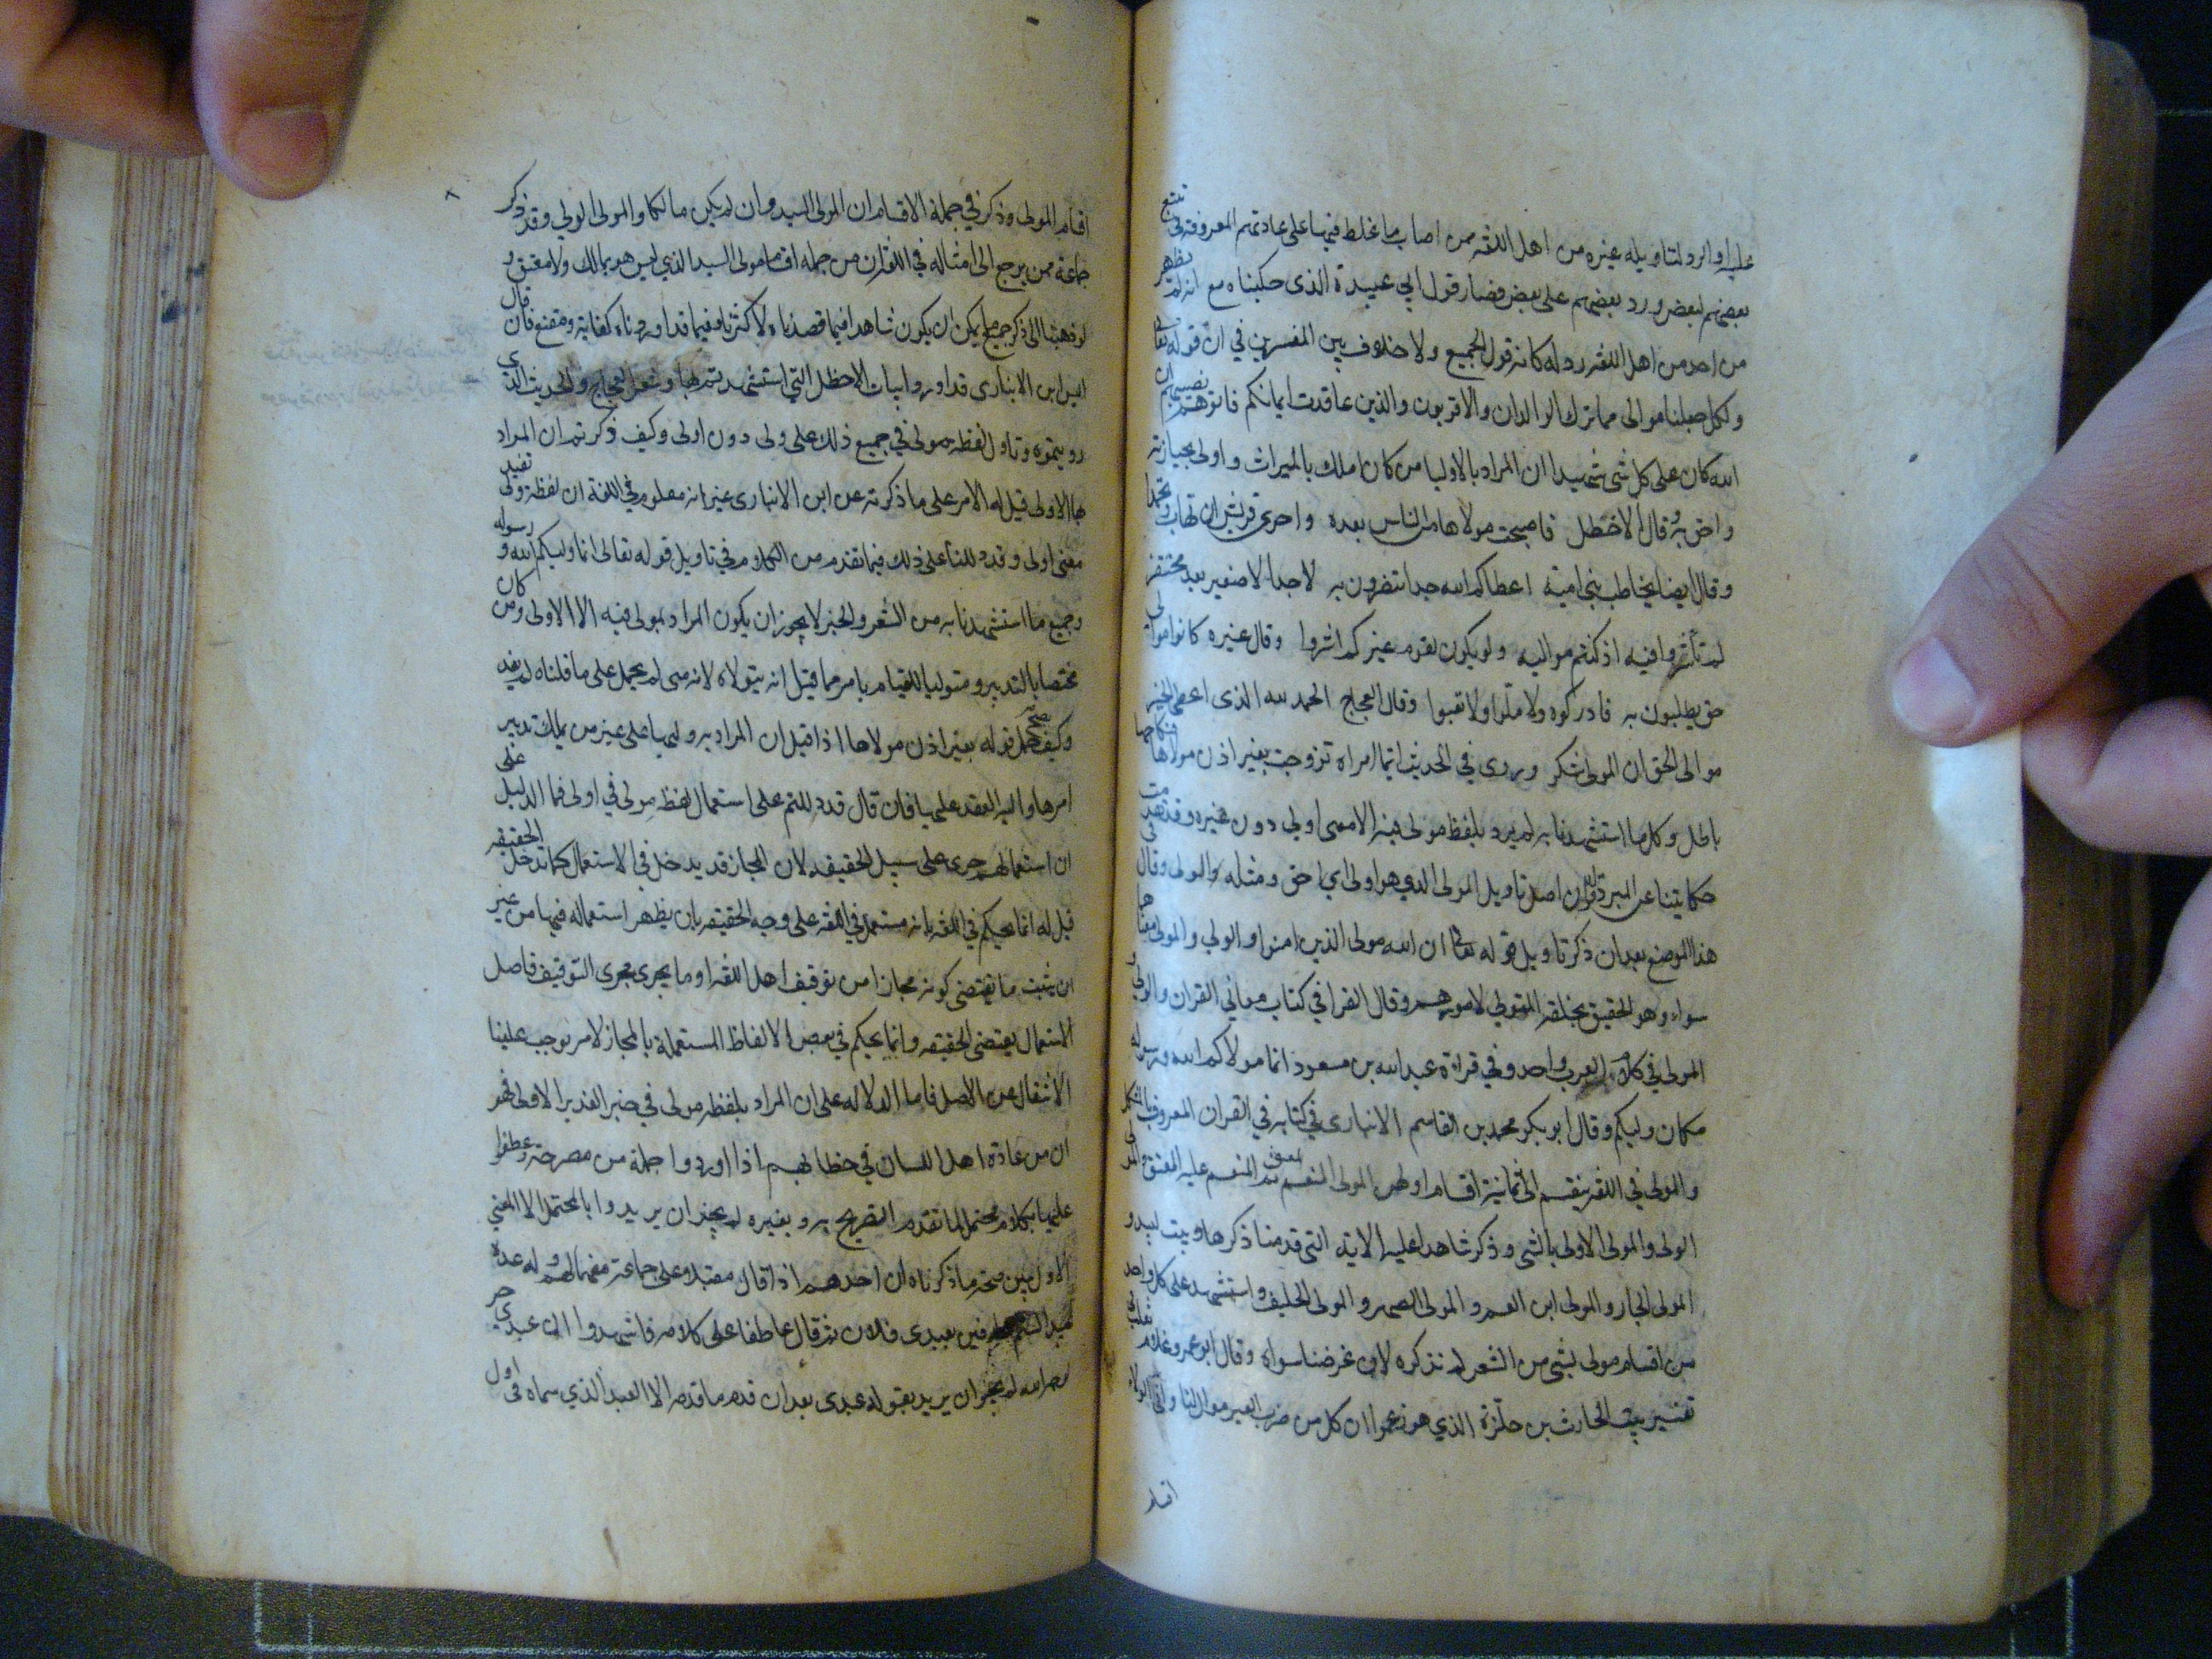 عليه او الرد لتاويله غيره من اهل اللغه ممن اصاب ما غلط فيها على عادتهم المعروفه في تتبع
بعضهم لبعض ورد بعضهم على بعض فصار قول ابي عبيدة الذى حكيناه مع انه لم يظهر
من احد من اهل اللغه رد له كانه قول الجميع ولا خلاف بين المفسرين في ان قوله تعالى
ولكل جعلنا موالى مما ترك الوالدان والاقربون والذين عاقدت ايمانكم فاتوهم نصيبهم ان
الله كان على كل شى شهيدا ان المراد بالاوليا من كان املك بالميراث واولى بحيازته
واحق به وقال الاخطل فاصبحت مولاها من الناس بعده واحرى قريش ان تهاب وتحمدا
وقال ايضا يخاطب بنى امية اعطاكم الله جدا تنصرون به لا جد الا صغير بعد محتقر
لم تأشروا فيه اذ كنتم مواليه ولو يكون لقوم غيركم اشروا وقال غيره كانوا موالى
حق يطلبون به فادركوه وما ملوا ولا تعبوا وقال العجاج الحمد لله الذى اعطى الخير
موالى الحق ان المولى شكر وروى في الحديث ايما امراة تزوجت بغير اذن مولاها فنكاحها
باطل وكل ما استشهدنا به لم يرد بلفظ مولى فيه الا معنى اولى دون غيره وقد تقدمت
حكايتنا عن المبرد قوله ان اصل تاويل المولى الذي هو اولى اي احق ومثله المولى وقال في
هذا الموضع بعد ان ذكر تاويل قوله تعالى ان الله مولى الذين امنوا والولي والمولى معناهما
سواء وهو الحقيق بخلقه المتولي لامورهم وقال الفرا في كتاب معاني القران والولي و
المولى في كلام العرب واحد وفي قراءة عبد الله بن مسعود انما مولاكم الله ورسوله
مكان وليكم وقال ابو بكر محمد بن القاسم الانبارى في كتابه في القران المعروف بالمشكل
والمولى في اللغه ينقسم الى ثمانية اقسام اولهن المولى المنعم المعتق ثم المنعم عليه المعتق والمولى
الولى والمولى الاولى بالشى وذكر شاهدا عليه الاية التى قدمنا ذكرها وبيت لبيد و
المولى الجار والمولى ابن العم والمولى الصهر والمولى الحليف واستشهد على كل واحد
من اقسام مولى بشى من الشعر لم نذكره لان غرضنا سواه وقال ابو عمرو غلام ثعلب في
تفسير بيت الحارث بن حلزة الذي هو زعموا ان كل من ضرب العير موال لنا وانى الولاء
اقسام
اقسام المولى وذكر في جملة الاقسام ان المولى السيد وان لم يكن مالكا والمولى الولي وقد ذكر
جماعة ممن يرجع الى امثاله في اللغة ان من جملة اقسام مولى السيد الذي ليس هو بمالك ولا معتق و
لو ذهبنا الى ذكر جميع ما يمكن ان يكون شاهدا فيما قصدناه لاكثرنا وفيما قد اوردناه كفاية ومقنع فان قال
اليس ابن الانبارى قد اورد ابيات الاخطل التي استشهدتم بها وشعر العجاج والحديث الذى
رويتموه وتاول لفظة مولى في جميع ذلك على ولى دون اولى وكيف ذكرتم ان المراد
بها الاولى قيل له الامر على ما ذكرته عن ابن الانبارى غير انه معلوم في اللغة ان لفظة ولى تفيد
معنى اولى وقد دللنا على ذلك فيما تقدم من الكلام في تاويل قوله تعالى انما وليكم الله و رسوله
وجميع ما استشهدنا به من الشعر والخبر لا يجوز ان يكون المراد بمولى فيه الا الاولى ومن كان
مختصا بالتدبير ومتوليا للقيام بامر ما قيل انه يتولاه لانه متى لم يحمل على ما قلناه لم يفد
وكيف يصح حمل قوله بغير اذن مولاها اذا قيل ان المراد به وليها على غير من يملك تدبير
امرها واليه العقد عليها فان قال قد دللتم على استعمال لفظ مولى في اولى فما الدليل على
ان استعمالهم جرى على سبيل الحقيقه لان المجاز قد يدخل في الاستعمال كما تدخل الحقيقه
قيل له انما يحكم في اللفظ بانه مستعمل في اللغه على وجه الحقيقه بان يظهر استعماله فيها من غير
ان يثبت ما يقتضى كونه مجازا من توقيف اهل اللغه او ما يجرى مجرى التوقيف فاصل
الاستعمال يقتضى الحقيقه وانما يحكم في بعض الالفاظ المستعملة بالمجاز لامر يوجب علينا
الانتقال عن الاصل فاما الدلاله على ان المراد بلفظه مولى في خبر الغدير الاولى فهو
ان من عادة اهل اللسان في خطابهم اذا اوردوا جملة من مصرحة وعطفوا
عليها بكلام محتمل لما تقدم التصريح به ولغيره لم يجز ان يريدوا بالمحتمل الا المعنى
الاول يبين صحة ما ذكرناه ان احدهم اذا قال مقبلا على جماعة مفهما لهم وله عدة
عبيد الستم عارفين بعبدى فلان ثم قال عاطفا على كلامه فاشهدوا ان عبدي حر
لوجه الله لم يجز ان يريد بقوله عبدى بعد ان قدم ما قدمه الا العبد الذي سماه في اول